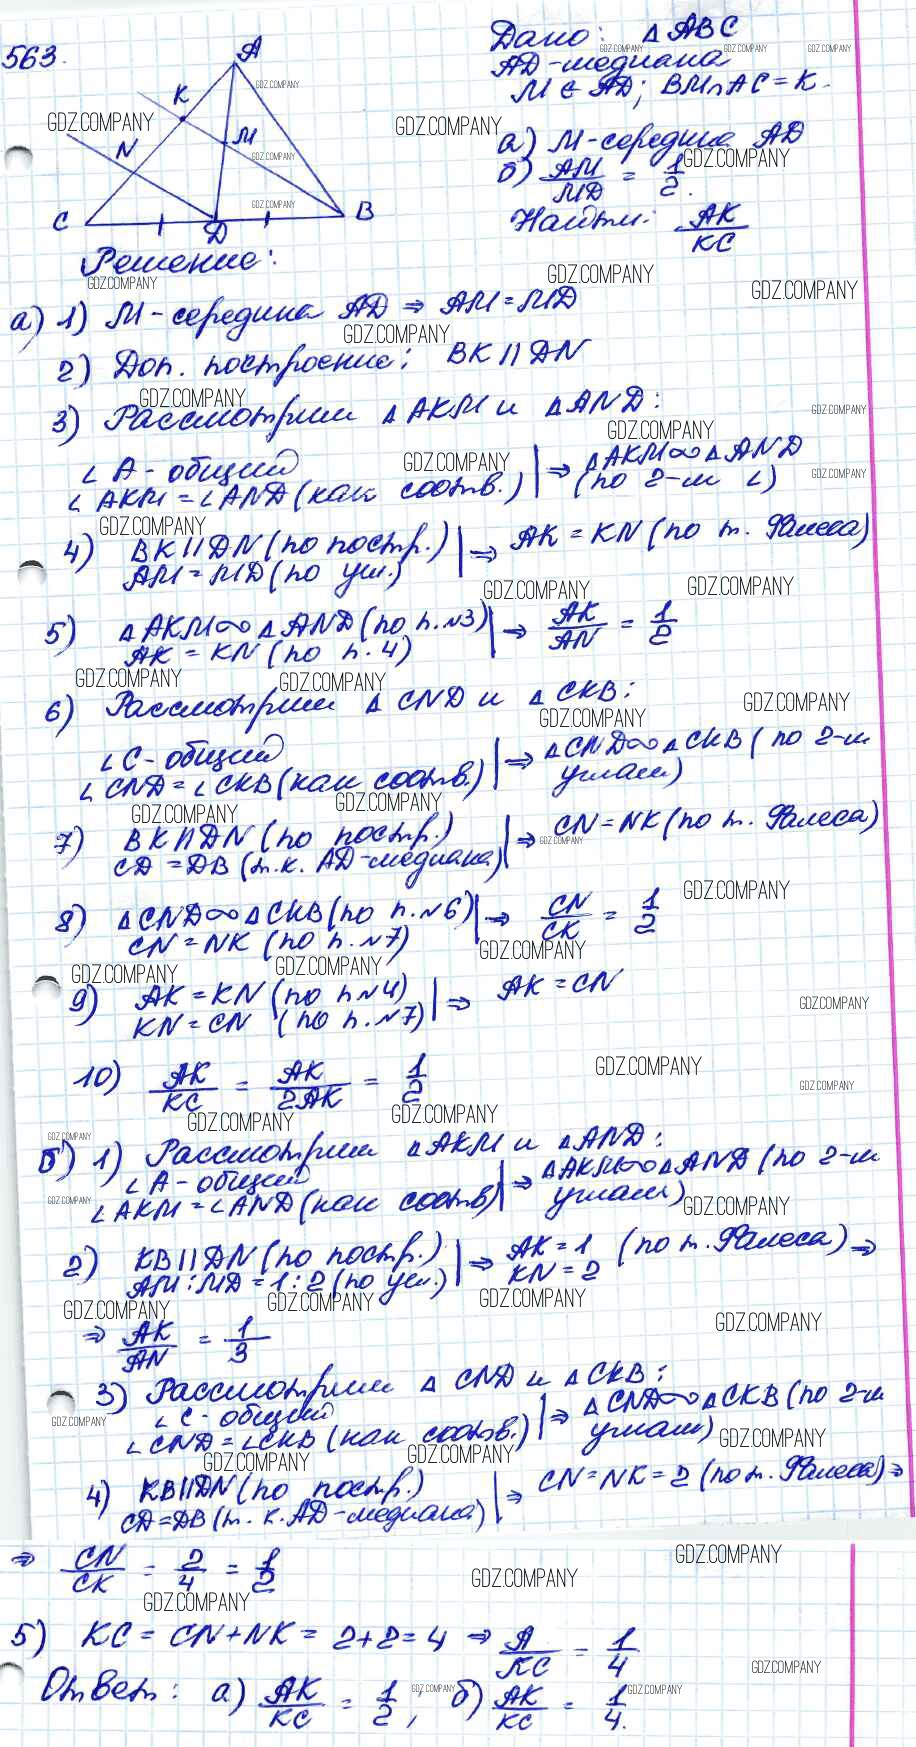 563.
Дано: △ABC
AD-медиана
M ∈ AD; BM∩AC=K.
а) M-середина AD
б) AM/MD = 1/2.
Найти: AK/KC
A
K
M
N
C
D
B
Решение:
а) 1) M-середина AD ⇒ AM=MD
2) Доп. построение: BK || DN
3) Рассмотрим △AKM и △AND:
∠A-общий | ⇒ △AKM∞△AND
∠AKM=∠AND (как соотв.) | (по 2-м ∠)
4) BK || DN (по постр.) | ⇒ AK = KN (по т. Фалеса)
AM=MD (по усл.)
5) △AKM∞△AND (по п.№3) | ⇒ AK/AN = 1/2
AK = KN (по п.4)
6) Рассмотрим △CND и △CKB:
∠C-общий | ⇒ △CND∞△CKB (по 2-м
∠CND=∠CKB (как соотв.) | углам)
7) BK || DN (по постр.) | ⇒ CN=NK (по т. Фалеса)
CD = DB (т.к. AD-медиана)
8) △CND∞△CKB (по п.№6) | ⇒ CN/CK = 1/2
CN=NK (по п.№7)
9) AK=KN (по п№4) | ⇒ AK=CN
KN=CN (по п.№7)
10) AK/KC = AK/2AK = 1/2
б) 1) Рассмотрим △AKM и △AND:
∠A-общий | ⇒ △AKM∞△AND (по 2-м
∠AKM=∠AND (как соотв) | углам)
2) KB || DN (по постр.) | ⇒ AK=1 (по т. Фалеса) ⇒
AM:MD=1:2 (по усл.) | KN=2
⇒ AK/AN = 1/3
3) Рассмотрим △CND и △CKB:
∠C-общий | ⇒ △CND∞△CKB (по 2-м
∠CND=∠CKB (как соотв.) | углам)
4) KB||DN (по постр.) | ⇒ CN=NK=2 (по т. Фалеса) ⇒
CD=DB (т.к. AD-медиана)
⇒ CN/CK = 2/4 = 1/2
5) KC = CN+NK = 2+2=4 ⇒ A/KC = 1/4
Ответ: а) AK/KC = 1/2; б) AK/KC = 1/4.
GDZ.COMPANY